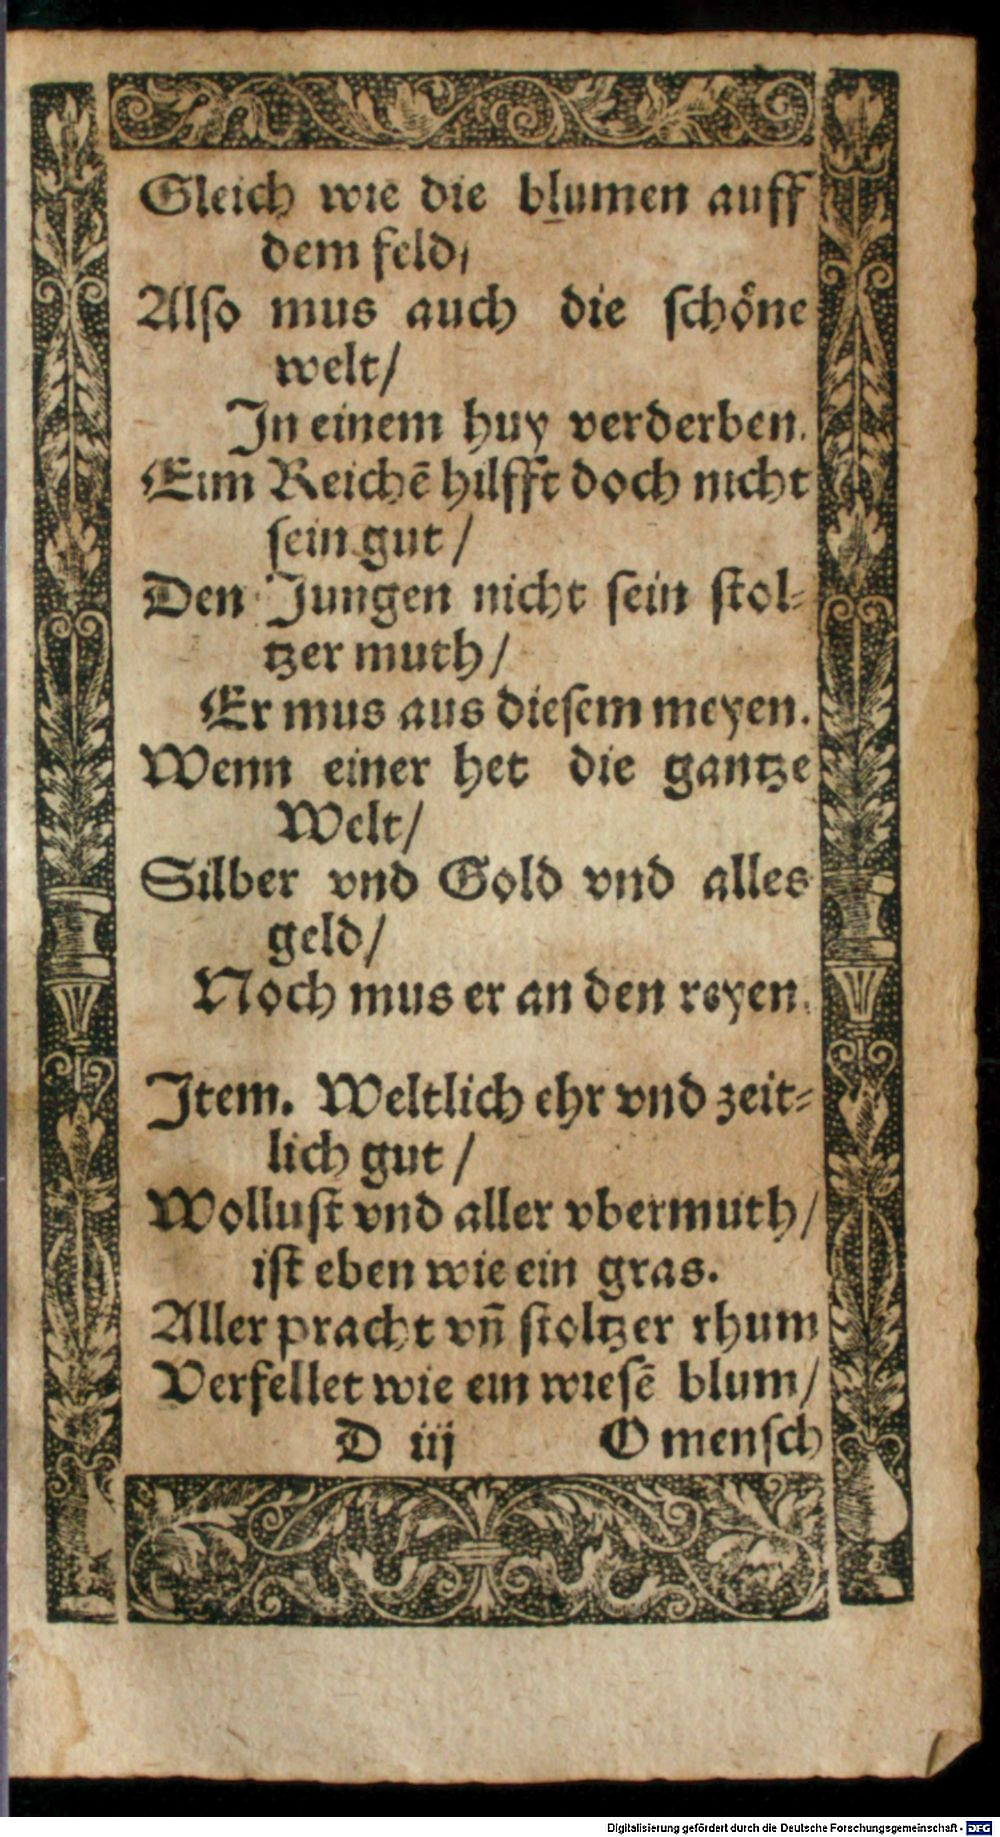 Gleich wie die blumen auff
dem feld/
Also mus auch die schöne
welt/
In einem huy verderben.
Eim Reichē hilfft doch nicht
sein gut /
Den Jungen nicht sein stol-
tzer muth /
Er mus aus diesem meyen.
Wenn einer het die gantze
Welt/
Silber vnd Gold vnd alles
geld/
Noch mus er an den reyen.
Item. Weltlich ehr vnd zeit-
lich gut /
Wollust vnd aller vbermuth /
ist eben wie ein gras.
Aller pracht vn̄ stoltzer rhum
Verfellet wie ein wiesē blum/
D iij O mensch
Digitalisierung gefördert durch die Deutsche Forschungsgemeinschaft - DFG